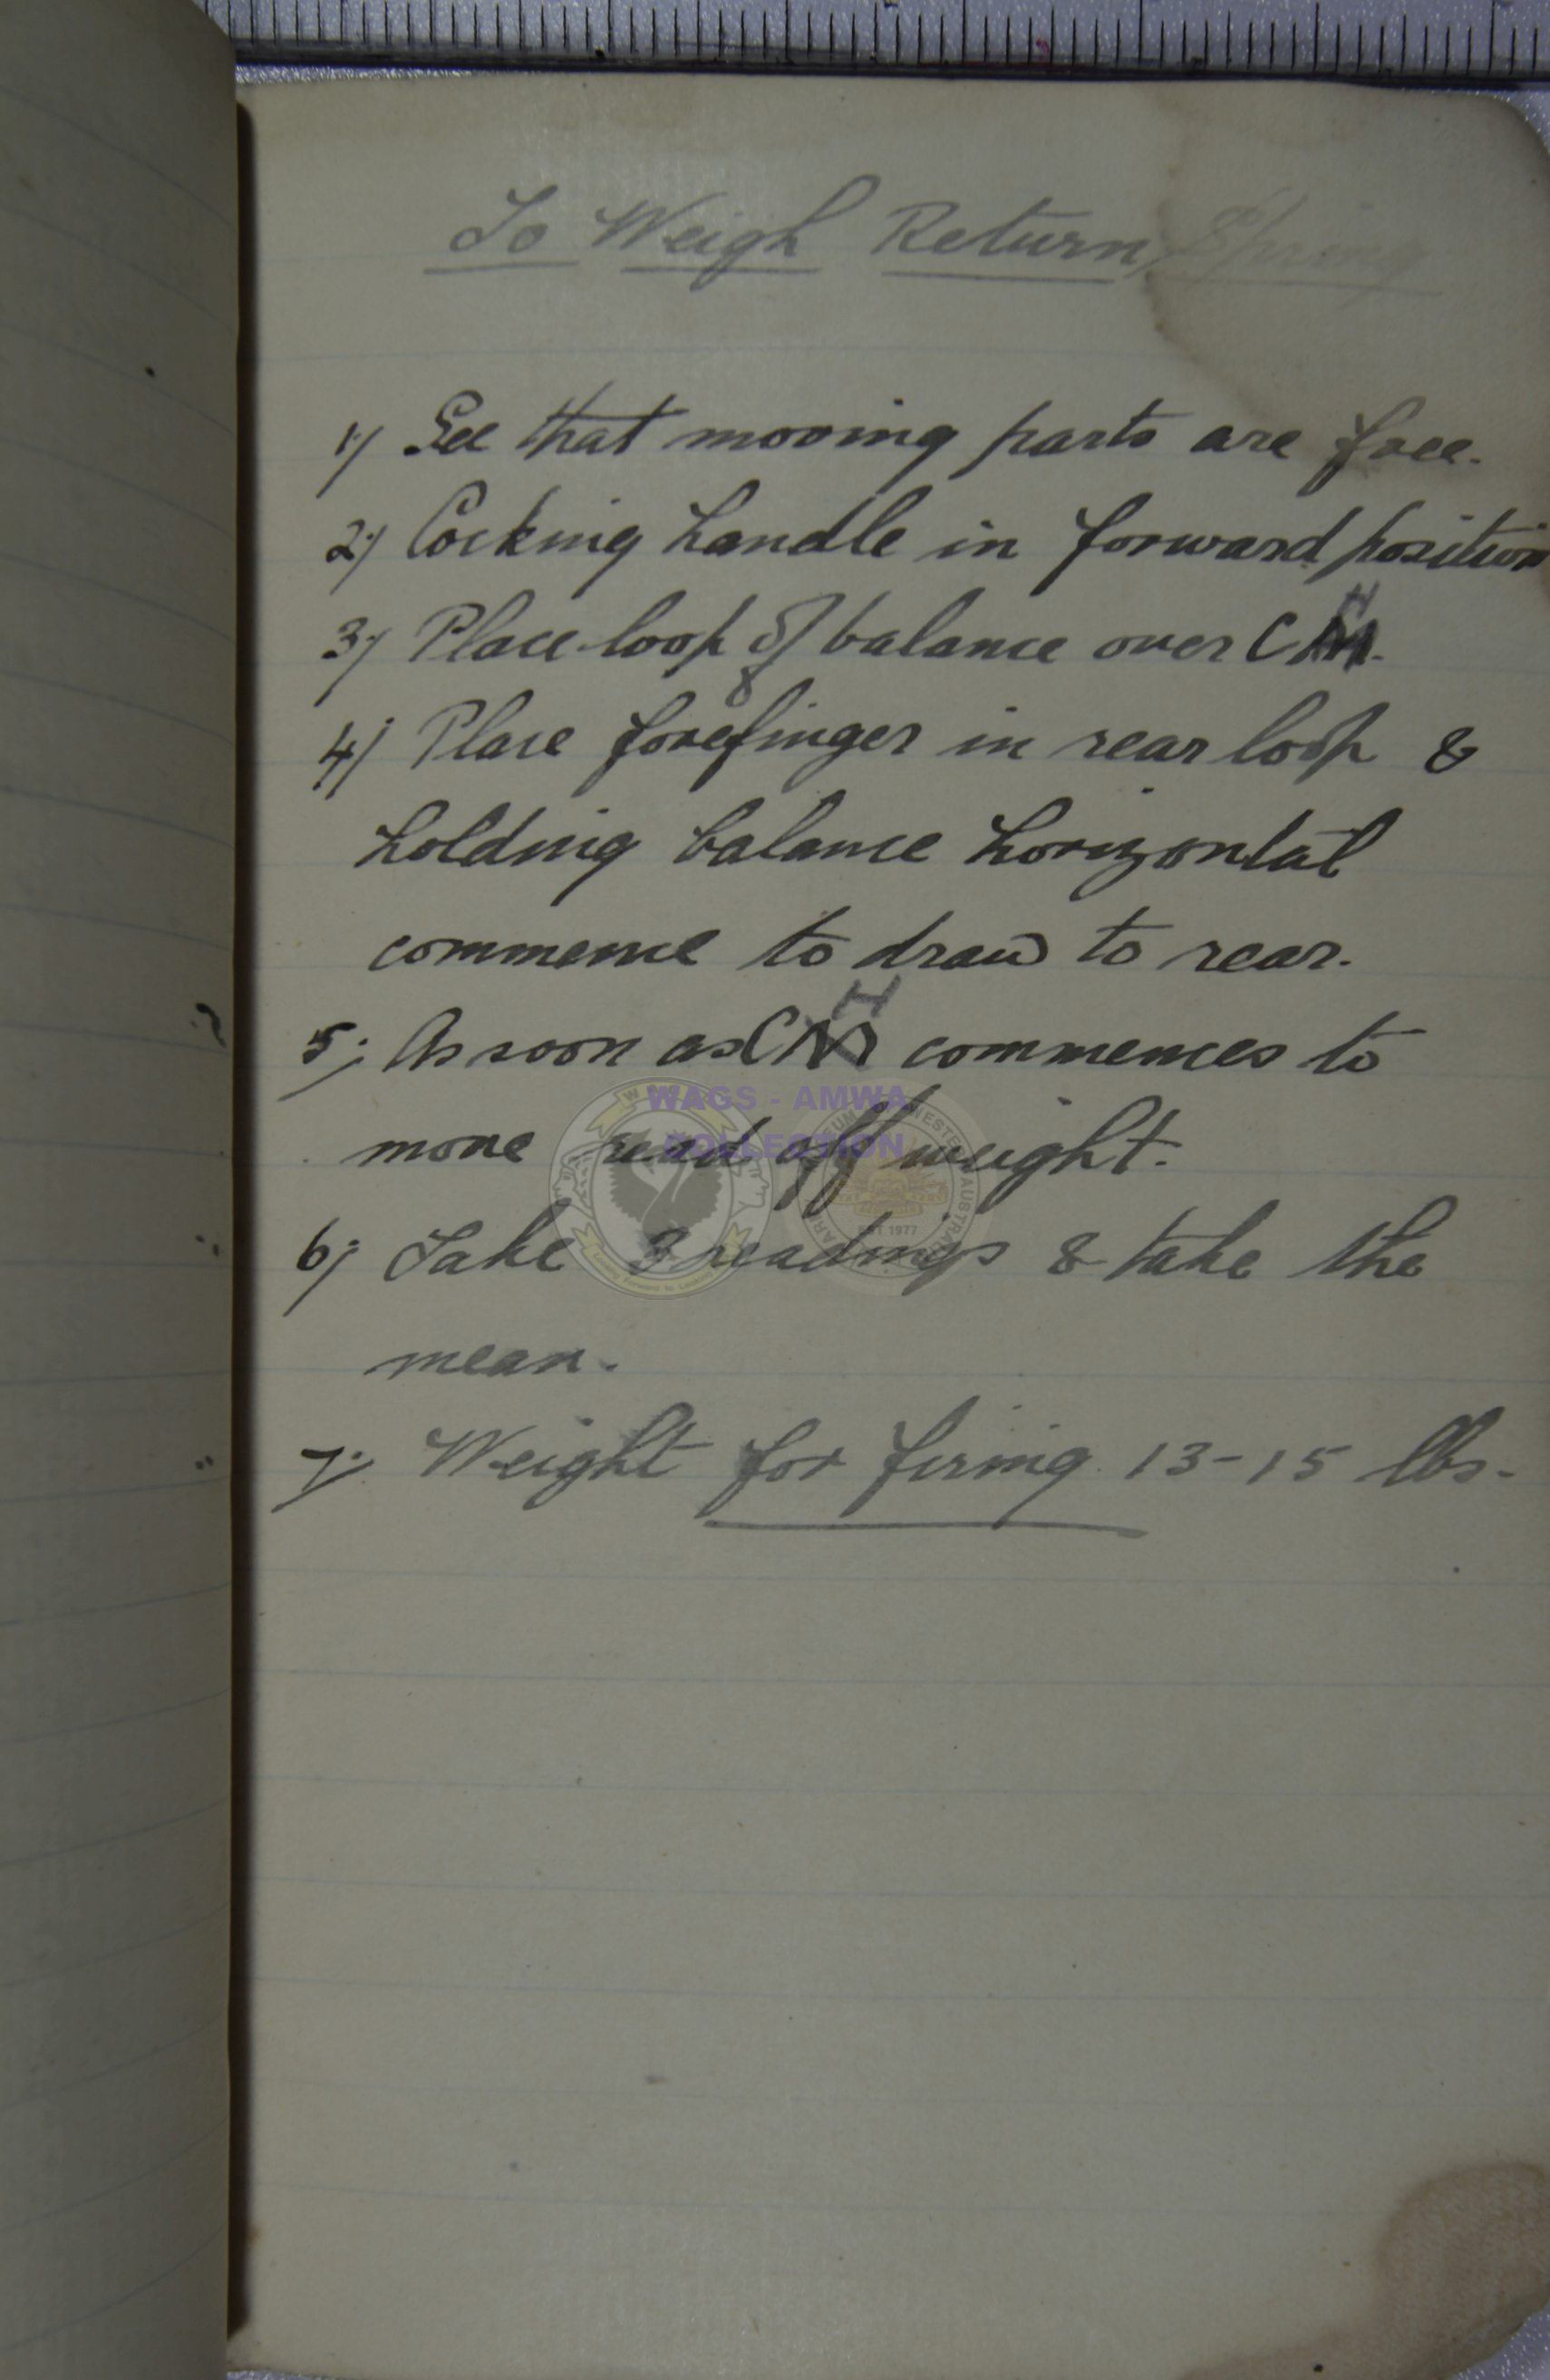 To Weigh Return Spring
1) See that moving parts are free.
2) Cocking handle in forward position
3) Place loop of balance over CH.
4) Place forefinger in rear loop &
holding balance horizontal
commence to draw to rear.
5) As soon as CH commences to
move read off weight.
6) Take 3 readings & take the
mean.
7) Weight for firing 13-15 lbs.
WAGS - AMWA
COLLECTION
EST 1977